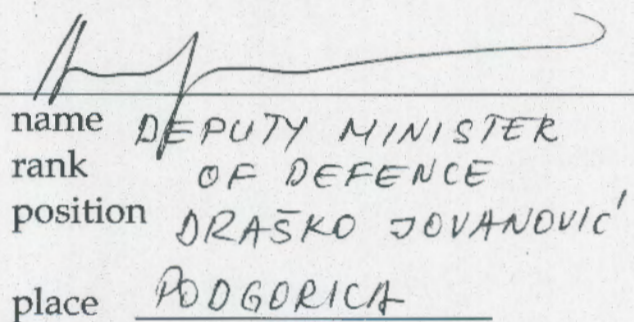 name DEPUTY MINISTER
rank OF DEFENCE
position DRAŠKO JOVANOVIĆ
place PODGORICA